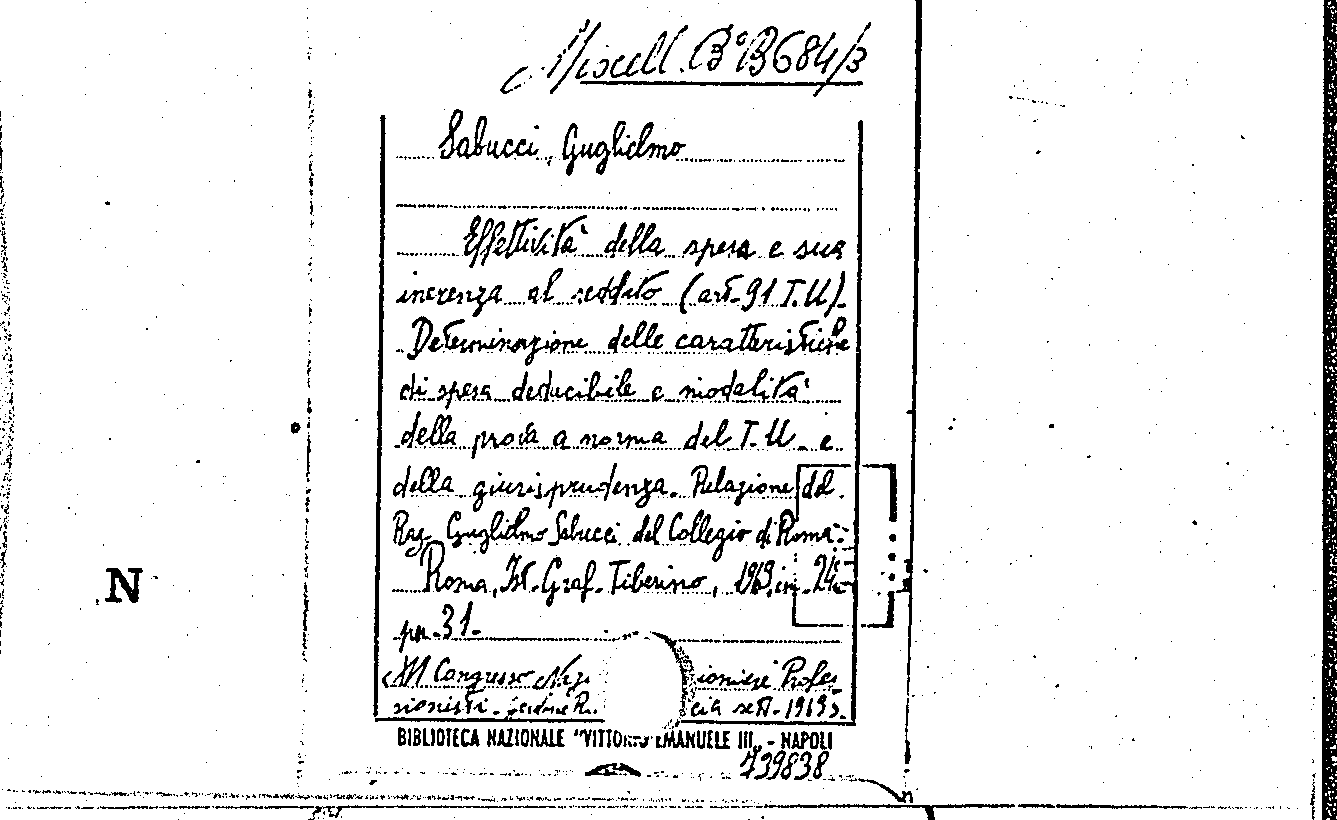 Miscell. B°B684/3
Sabucci, Guglielmo
Effettività della spesa e sua
inerenza al reddito (art. 91 T.U).
Determinazione delle caratteristiche
di spesa deducibile e modalità
della prova a norma del T.U. e
della giurisprudenza. Relazione del
Rag. Guglielmo Sabucci del Collegio di Roma.
Roma, Ist. Graf. Tiberino, 1969, in 24°
N
pp. 31.
Congresso ionieri Profes
sionisti. cia sett. 1969).
BIBLIOTECA NAZIONALE "VITTORIO EMANUELE III" - NAPOLI
739838